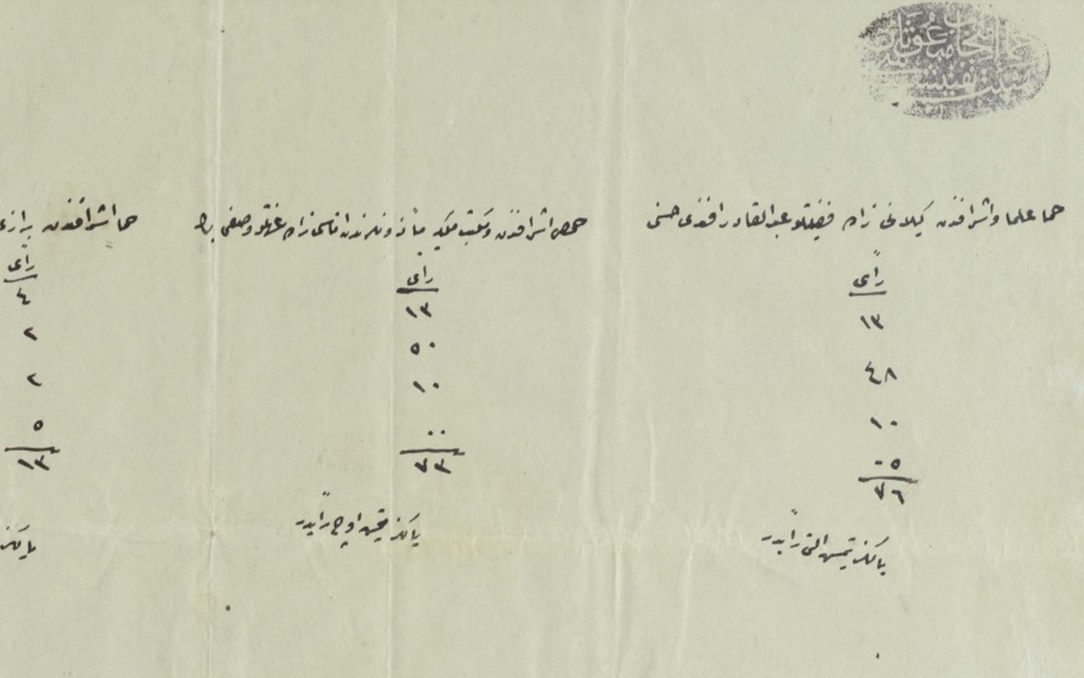 حما علما واشرافندن كيلانی زاده فضيلتلو عبد القادر افندی حسنی
رأی
١٣
٤٨
١٠
٠٥
٧٦
يالكز يتمش التی رأيدر
حمص اشرافندن ومكتب ملكيه مأذونلرندن اتاسی زاده عزتلو وصفی بك
رأی
١٣
٥٠
١٠
٠٠
٧٣
يالكز يتمش اوچ رأيدر
حما اشرافندن برازی
رأی
٤
٢
٢
٥
١٣
يالكز